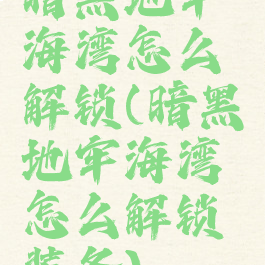 暗黑地牢
海湾怎么
解锁(暗黑
地牢海湾
怎么解锁
装备)